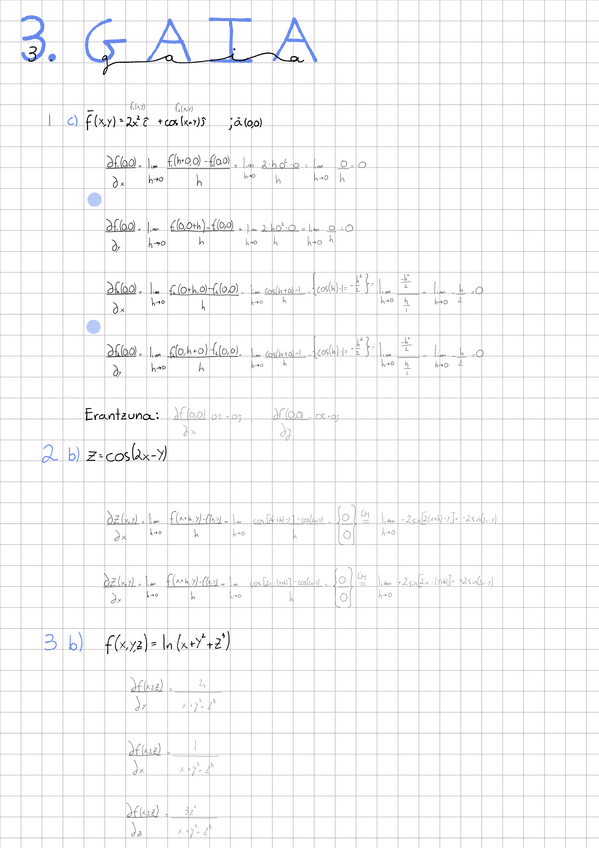 3. GAIA
3. gaia
f₁(x,y) f₂(x,y)
1 c) f̄(x,y)=2x² î + cos(x+y) ĵ ; ā(0,0)
∂f(0,0)/∂x = lim h→0 f(h+0,0)-f(0,0)/h = lim h→0 2·h0²-0/h = lim h→0 0/h = 0
∂f(0,0)/∂y = lim h→0 f(0,0+h)-f(0,0)/h = lim h→0 2h0²-0/h = lim h→0 0/h = 0
∂f₂(0,0)/∂x = lim h→0 f₂(0+h,0)-f₂(0,0)/h = lim h→0 cos(h+0)-1/h = {cos(h)-1=-h²/2} = lim h→0 -h²/2 / h/1 = lim h→0 -h/2 = 0
∂f₂(0,0)/∂y = lim h→0 f₂(0,h+0)-f₂(0,0)/h = lim h→0 cos(h+0)-1/h = {cos(h)-1=-h²/2} = lim h→0 -h²/2 / h/1 = lim h→0 -h/2 = 0
Erantzuna: ∂f(0,0)/∂x ∂f(0,0)/∂y
2 b) z=cos(2x-y)
∂z(x,y)/∂x = lim h→0 f(x+h,y)-f(x,y)/h = lim h→0 = {0/0} = lim h→0 -2sin[2(x+h)-y] = -2sin(2x-y)
∂z(x,y)/∂y = lim h→0 f(x+h,y)-f(x,y)/h = lim h→0 = {0/0} = lim h→0
3 b) f(x,y,z)=ln(x+y²+z³)
∂f(x,y,z)/∂y = 2y/x+y²+z³
∂f(x,y,z)/∂x = 1/x+y²+z³
∂f(x,y,z)/∂z = 3z²/x+y²+z³